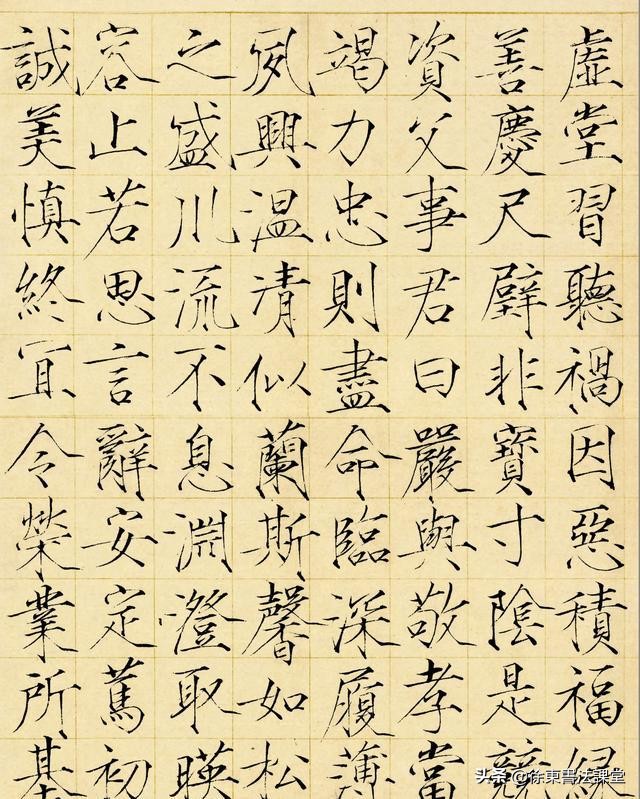 虛堂習聽禍因惡積福緣
善慶尺璧非寶寸陰是競
資父事君曰嚴與敬孝當
竭力忠則盡命臨深履薄
夙興温清似蘭斯馨如松
之盛川流不息淵澄取暎
容止若思言辭安定篤初
誠美慎終宜令榮業所基
头条 @徐東書法課堂